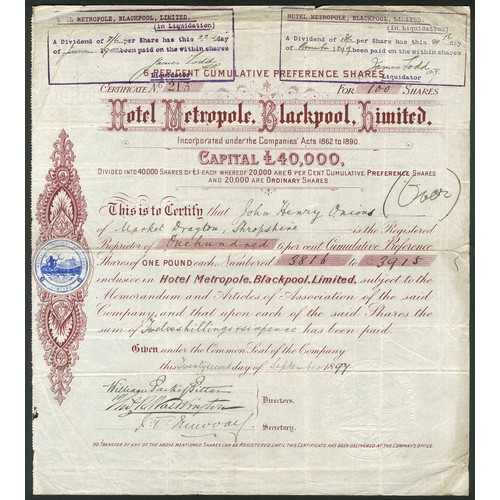 HOTEL METROPOLE, BLACKPOOL, LIMITED.
(in Liquidation)
A Dividend of per Share has this day
of been paid on the within shares
James Todd
Liquidator
HOTEL METROPOLE, BLACKPOOL, LIMITED.
(in Liquidation)
A Dividend of per Share has this day
of been paid on the within shares
James Todd
Liquidator
PER CENT CUMULATIVE PREFERENCE SHARES
CERTIFICATE No 213 FOR 100 SHARES
Hotel Metropole, Blackpool, Limited.
Incorporated under the Companies' Acts 1862 to 1890.
CAPITAL £40,000,
DIVIDED INTO 40,000 SHARES OF £1 EACH WHEREOF 20,000 ARE 6 PER CENT CUMULATIVE PREFERENCE SHARES
AND 20,000 ARE ORDINARY SHARES
(Over)
This is to Certify that John Henry Onions
of Market Drayton, Shropshire is the Registered
Proprietor of One hundred 6 per cent Cumulative Preference
Shares of ONE POUND each, Numbered 3816 to 3915
inclusive in Hotel Metropole, Blackpool, Limited, subject to the
Memorandum and Articles of Association of the said
Company, and that upon each of the said Shares the
sum of Twelve shillings & sixpence has been paid.
Given under the Common Seal of the Company
this Twenty second day of September 1897
Directors.
Secretary.
NO TRANSFER OF ANY OF THE ABOVE MENTIONED SHARES CAN BE REGISTERED UNTIL THIS CERTIFICATE HAS BEEN DELIVERED AT THE COMPANY'S OFFICE.